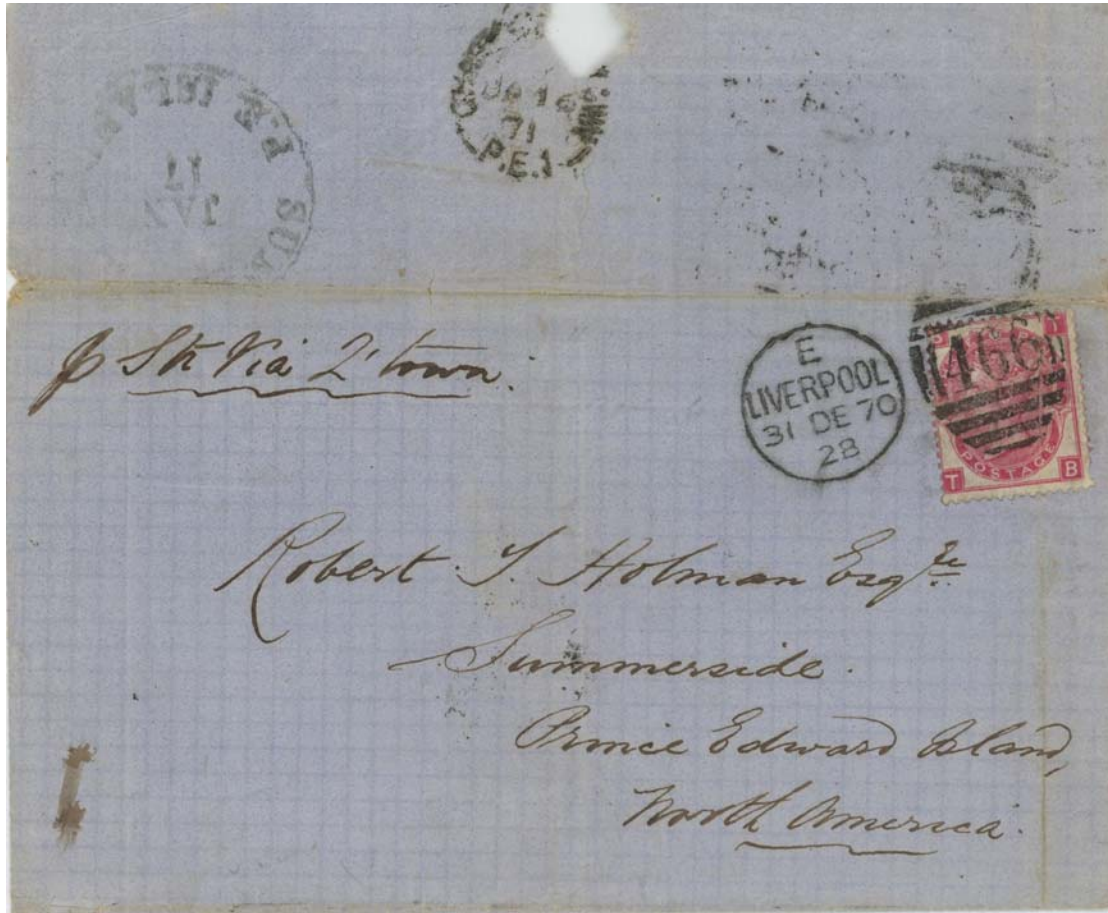 P.E. ISLA
17
JAN
SUM
JA 16
71
P.E.I
p Str Via Q'town.
E
LIVERPOOL
31 DE 70
28
466
POSTAGE
T B
Robert T. Holman Esqre
Summerside.
Prince Edward Island,
North America.